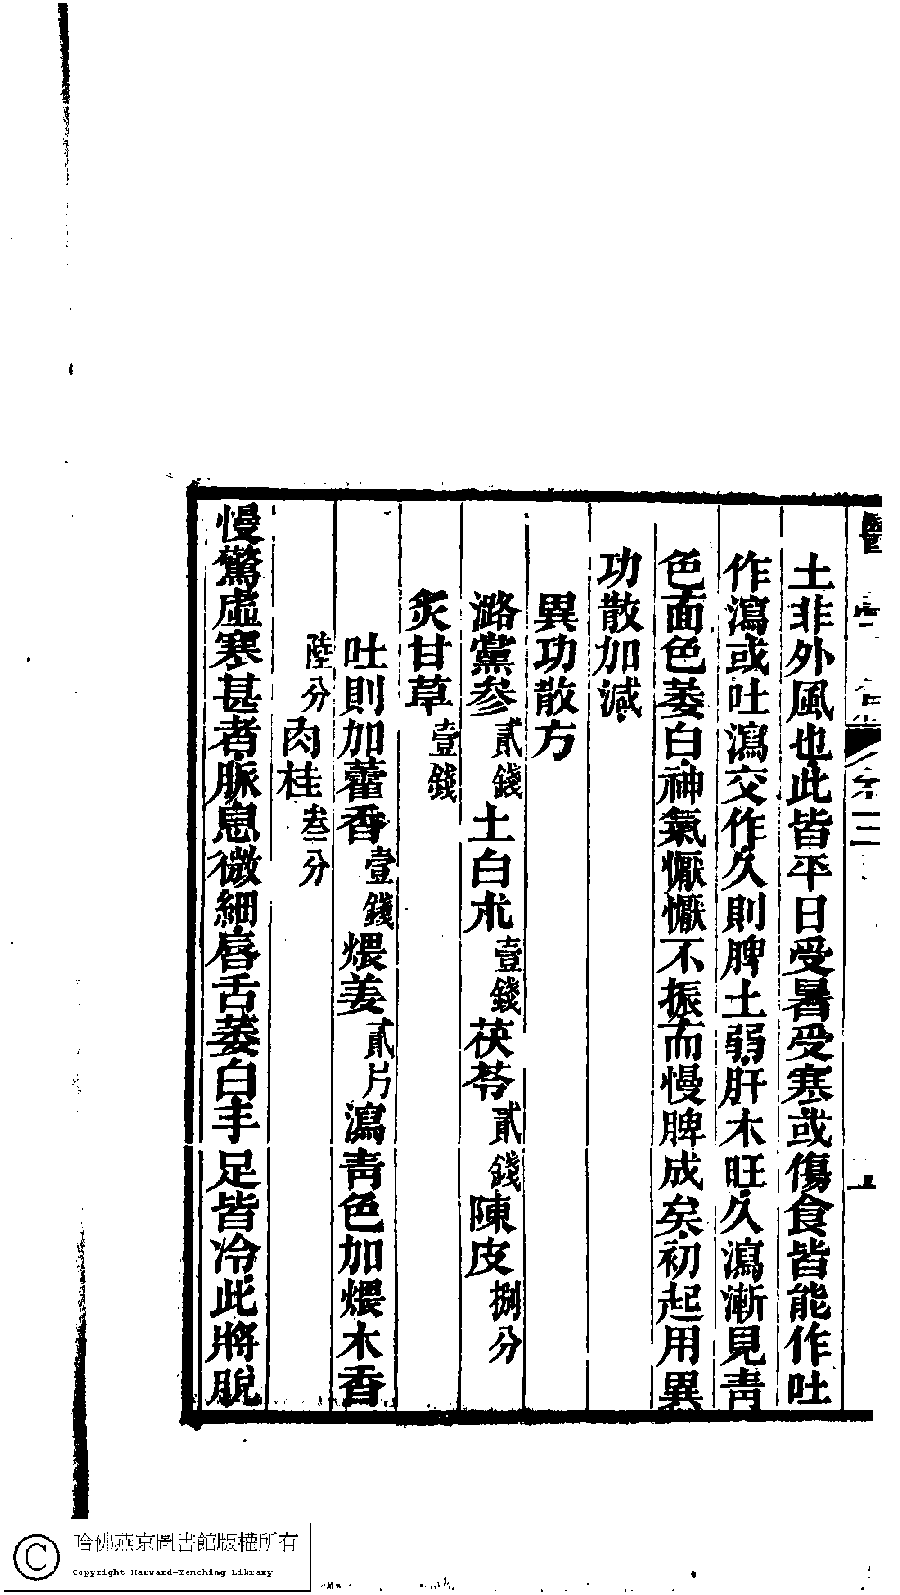 土非外風也此皆平日受暑受寒或傷食皆能作吐
作瀉或吐瀉交作久則脾土弱肝木旺久瀉漸見青
色面色萎白神氣懨懨不振而慢脾成矣初起用異
功散加減
異功散方
潞黨參貳錢土白朮壹錢茯苓貳錢陳皮捌分
炙甘草壹錢
吐則加藿香壹錢煨姜貳片瀉青色加煨木香
陸分肉桂叁分
慢驚虛寒甚者脈息微細唇舌萎白手足皆冷此將脫
哈佛燕京圖書館版權所有
Copyright Harvard-Yenching Library